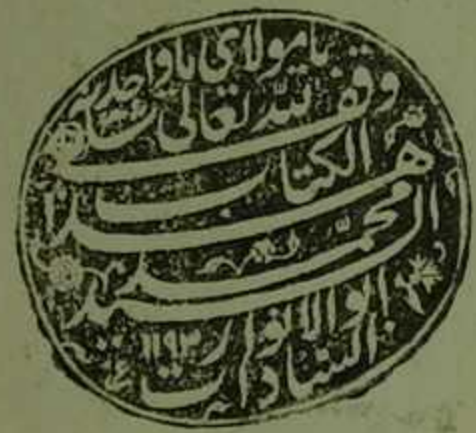 يا مولاي يا واحد
وقف لله تعالى
هذا الكتاب
السيد محمد
ابو الانوار
السادات ١١٩٢